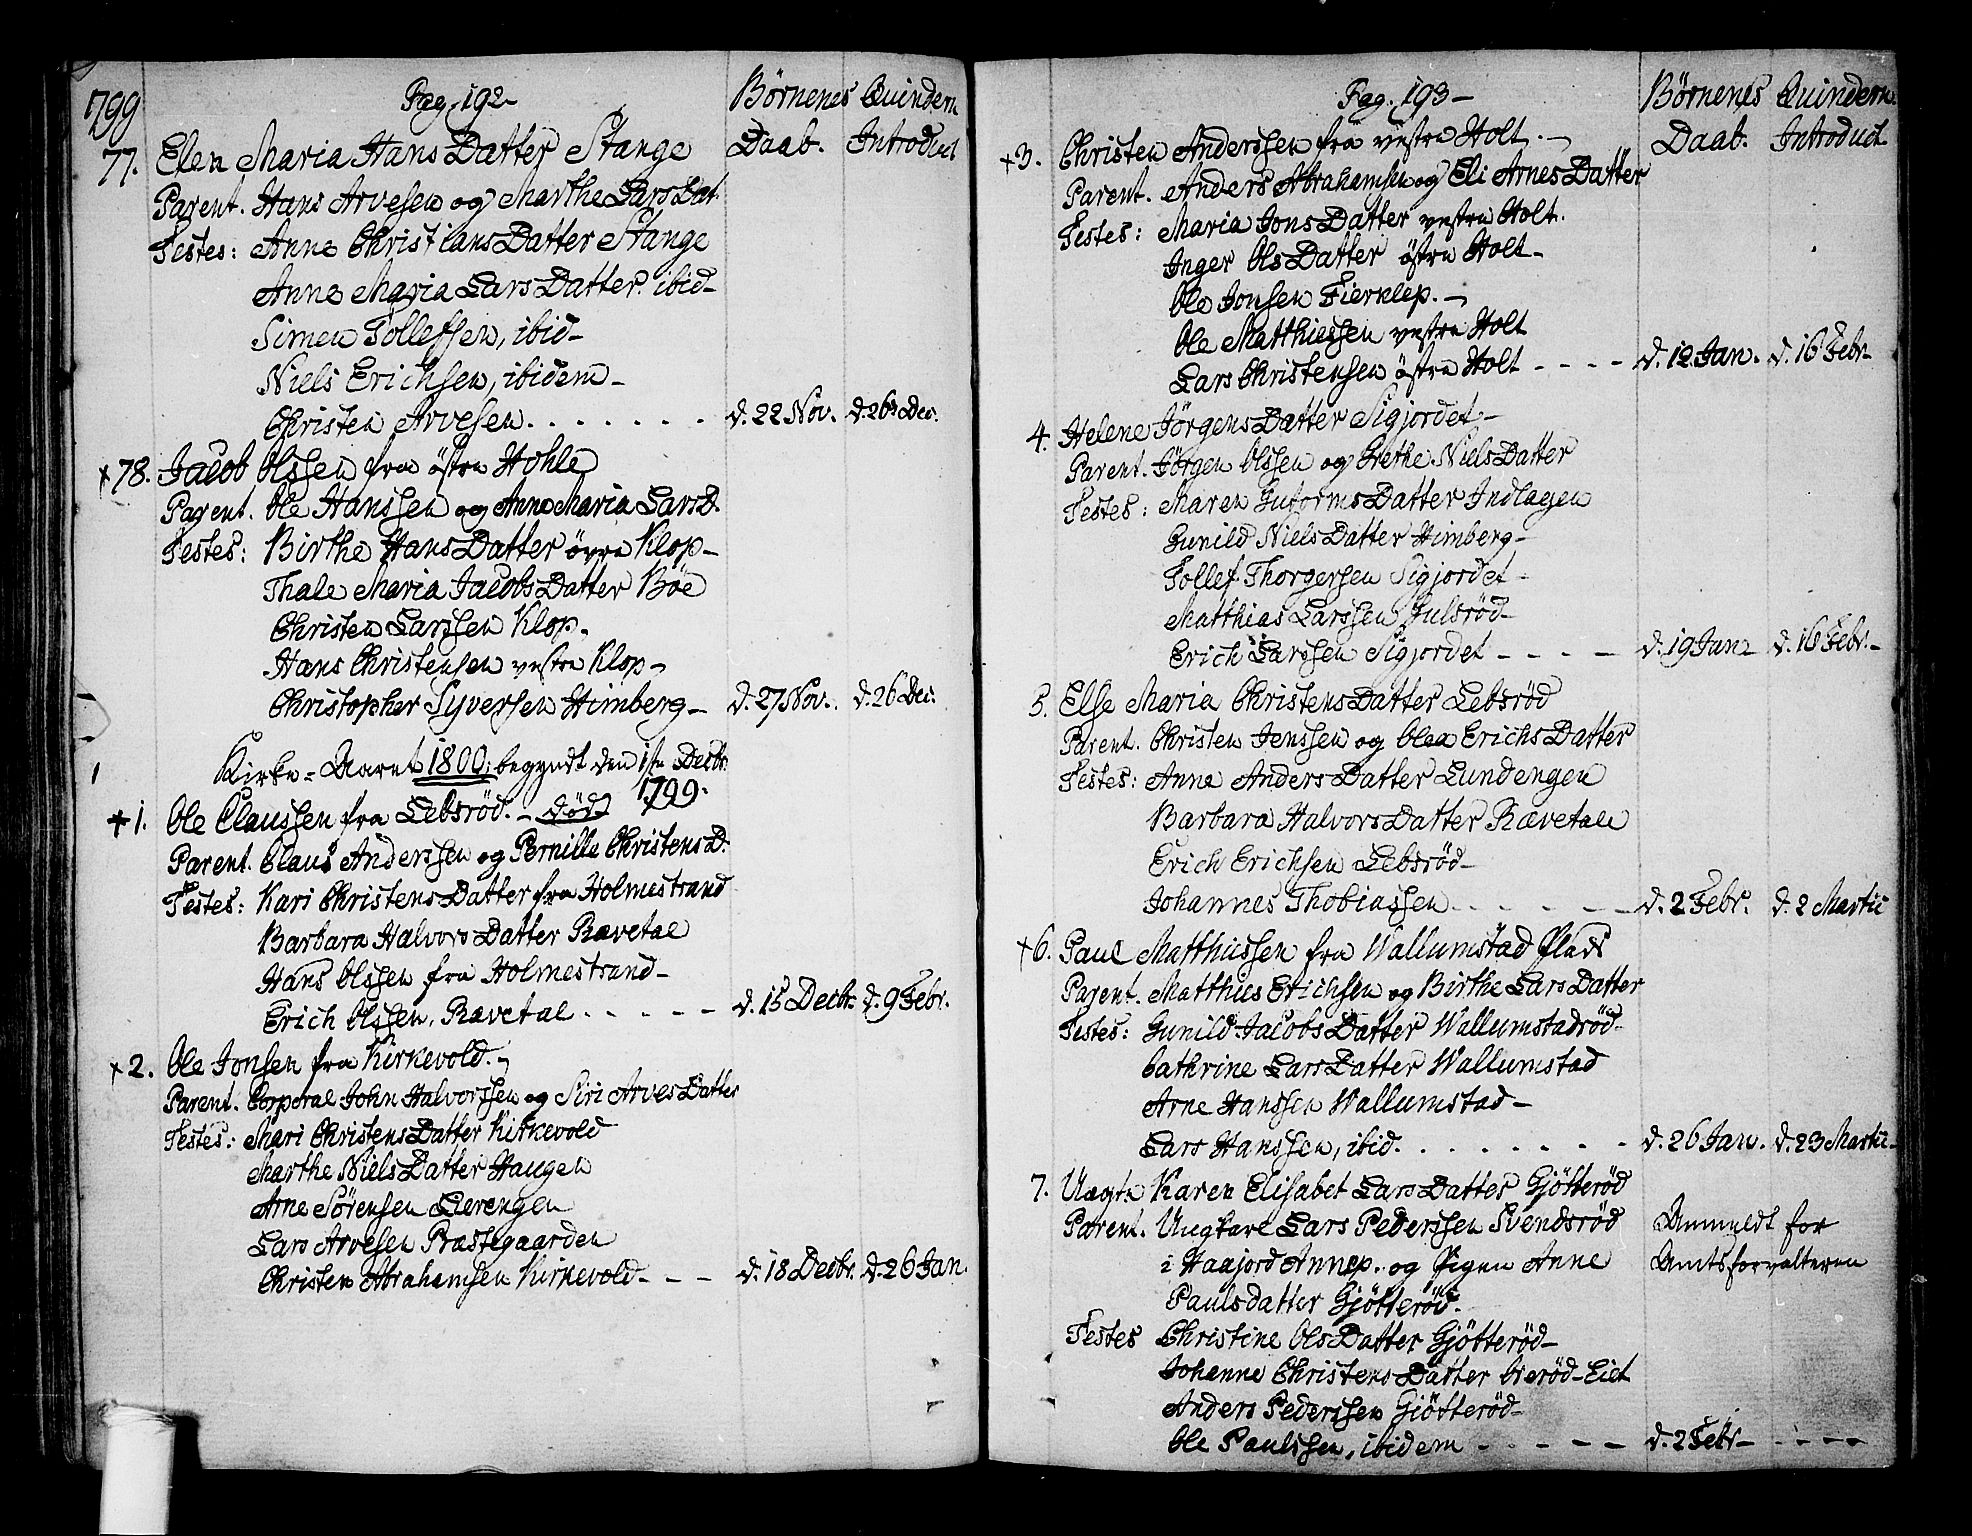 1799
Pag. 192
Børnenes Daab.
Quindern Introduct
77. Elen Maria HansDatter Stange
Parent. Hans Arvesen og Marthe LarsDat.
Testes: Anne ChristiansDatter Stange
Anne Maria LarsDatter. ibid-
Simen Tollefsen, ibid-
Niels Erichsen, ibidem-
Christen Arvesen . . . . . . . d. 22 Nov. d. 26 Dec.
+78. Jacob Olssen fra östre Hohle
Parent. Ole Hanssen og Anne Maria LarsD.
Testes: Birthe HansDatter övre Klop-
Thale Maria JacobsDatter Böe
Christen Larssen Klop.
Hans Christensen vestre Klop-
Christopher Syversen Himberg- d. 27 Nov. d. 26 Dec.
Kirke-Aaret 1800: begyndt den 1ste Decbr. 1799.
+1. Ole Claussen fra Lebsröd. - död
Parent. Claus Anderssen og Pernille ChristensD.
Testes: Kari ChristensDatter fra Holmestrand
Barbara HalvorsDatter Rævetal
Hans Olssen fra Holmestrand-
Erich Olssen, Rævetal . - - - - d. 15 Decbr. d. 9 Febr.
+2. Ole Jonsen fra Kirkevold.-
Parent. Corporal John Halvorssen og Siri ArvesDatter
Testes: Mari ChristensDatter Kirkevold
Marthe NielsDatter Haugen
Arne Sörensen Lerengen
Lars Arvesen Præstegaarden
Christen Abrahamsen Kirkevold- - - d. 18 Decbr. d. 26 Jan.
Pag. 193-
Børnenes Daab.
Quindern. Introduct.
+3. Christen Anderssen fra vestre Holt.-
Parent. Anders Abrahamsen og Eli ArnesDatter
Testes: Maria JonsDatter vestre Holt.
Inger OlsDatter östre Holt-
Ole Jonsen Fierklep.-
Ole Matthiessen vestre Holt
Lars Christensen östre Holt - - - - d. 12 Jan. d. 16 Febr-
4. Helene JörgensDatter Sigjordet-
Parent. Jörgen Olssen og Grethe NielsDatter
Testes: Maren GutormsDatter Indlagen
Gunild NielsDatter Himberg-
Tollef Thorgersen Sigjordet-
Matthias Larssen Julsröd-
Erich Larssen Sigjordet - - - - d. 19 Jan- d. 16 Febr.-
5. Else Maria ChristensDatter Lebsröd
Parent. Christen Jenssen og Olea ErichsDatter
Testes: Anne AndersDatter Lundengen
Barbara HalvorsDatter Rævetal
Erich Erichsen Lebsröd-
Johannes Thobiassen - - - - - - d. 2 Febr. d. 2 Martii
+6. Paul Matthiissen fra Wallumstad Plads
Parent. Matthies Erichsen og Birthe LarsDatter
Testes: Gunild JacobsDatter Wallumstadröd-
Cathrine LarsDatter Wallumstad
Arne Hanssen Wallumstad-
Lars Hanssen, ibid. . . . . . . . - d. 26 Jan. d. 23 Martii-
7. Uægte Karen Elisabet LarsDatter Gjötteröd
Parent. Ungkarl Lars Pederssen Svendsröd
i Haajord Annep. og Pigen Anne
Paulsdatter Gjötteröd.
Anmeldt for
Amtsforvalteren
Testes Christine OlsDatter Gjötteröd-
Johanne ChristensDatter Overöd-Eiet
Anders Pederssen Gjötteröd-
Ole Paulssen, ibidem - - - - - d. 2 Febr- - - - -